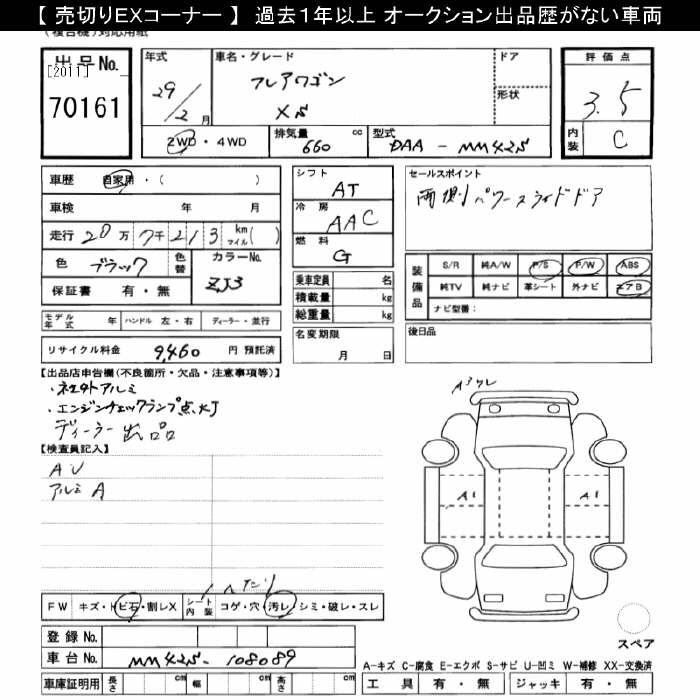 【 売切りEXコーナー 】 過去１年以上 オークション出品歴がない車両
出品No.
[2011]
70161
年式
29/2 月
車名・グレード
フレアワゴン
XS
ドア
形状
評価点
3.5
内装
C
2WD・4WD
排気量
660 cc
型式
DAA - MM42S
車歴 自家用・( )
車検 年 月
走行 20万7千213 km マイル( )
色 ブラック 色替
カラーNo.
ZJ3
保証書 有・無
シフト
AT
冷房
AAC
燃料
G
乗車定員 名
積載量 kg
総重量 kg
名変期限
月 日
セールスポイント
両側パワースライドドア
装備品
S/R 純A/W P/S P/W ABS
純TV 純ナビ 革シート 外ナビ エアB
ナビ型番：
後日品
モデル年式 年 ハンドル 左・右 ディーラー・並行
リサイクル料金 9,460 円 預託済
【出品店申告欄(不良箇所・欠品・注意事項等)】
・社外アルミ
・エンジンチェックランプ点灯
ディーラー出品
【検査員記入】
AU
アルミA
A3
A1
A1
FW キズ・トビ石・割レX シート内装 コゲ・穴・汚レ・シミ・破レ・スレ
ヘタリ
登録No.
車台No. MM42S-108089
車庫証明用 長さ cm 幅 cm 高さ cm
スペア
A-キズ C-腐食 E-エクボ S-サビ U-凹ミ W-補修 XX-交換済
工具 有・無 ジャッキ 有・無